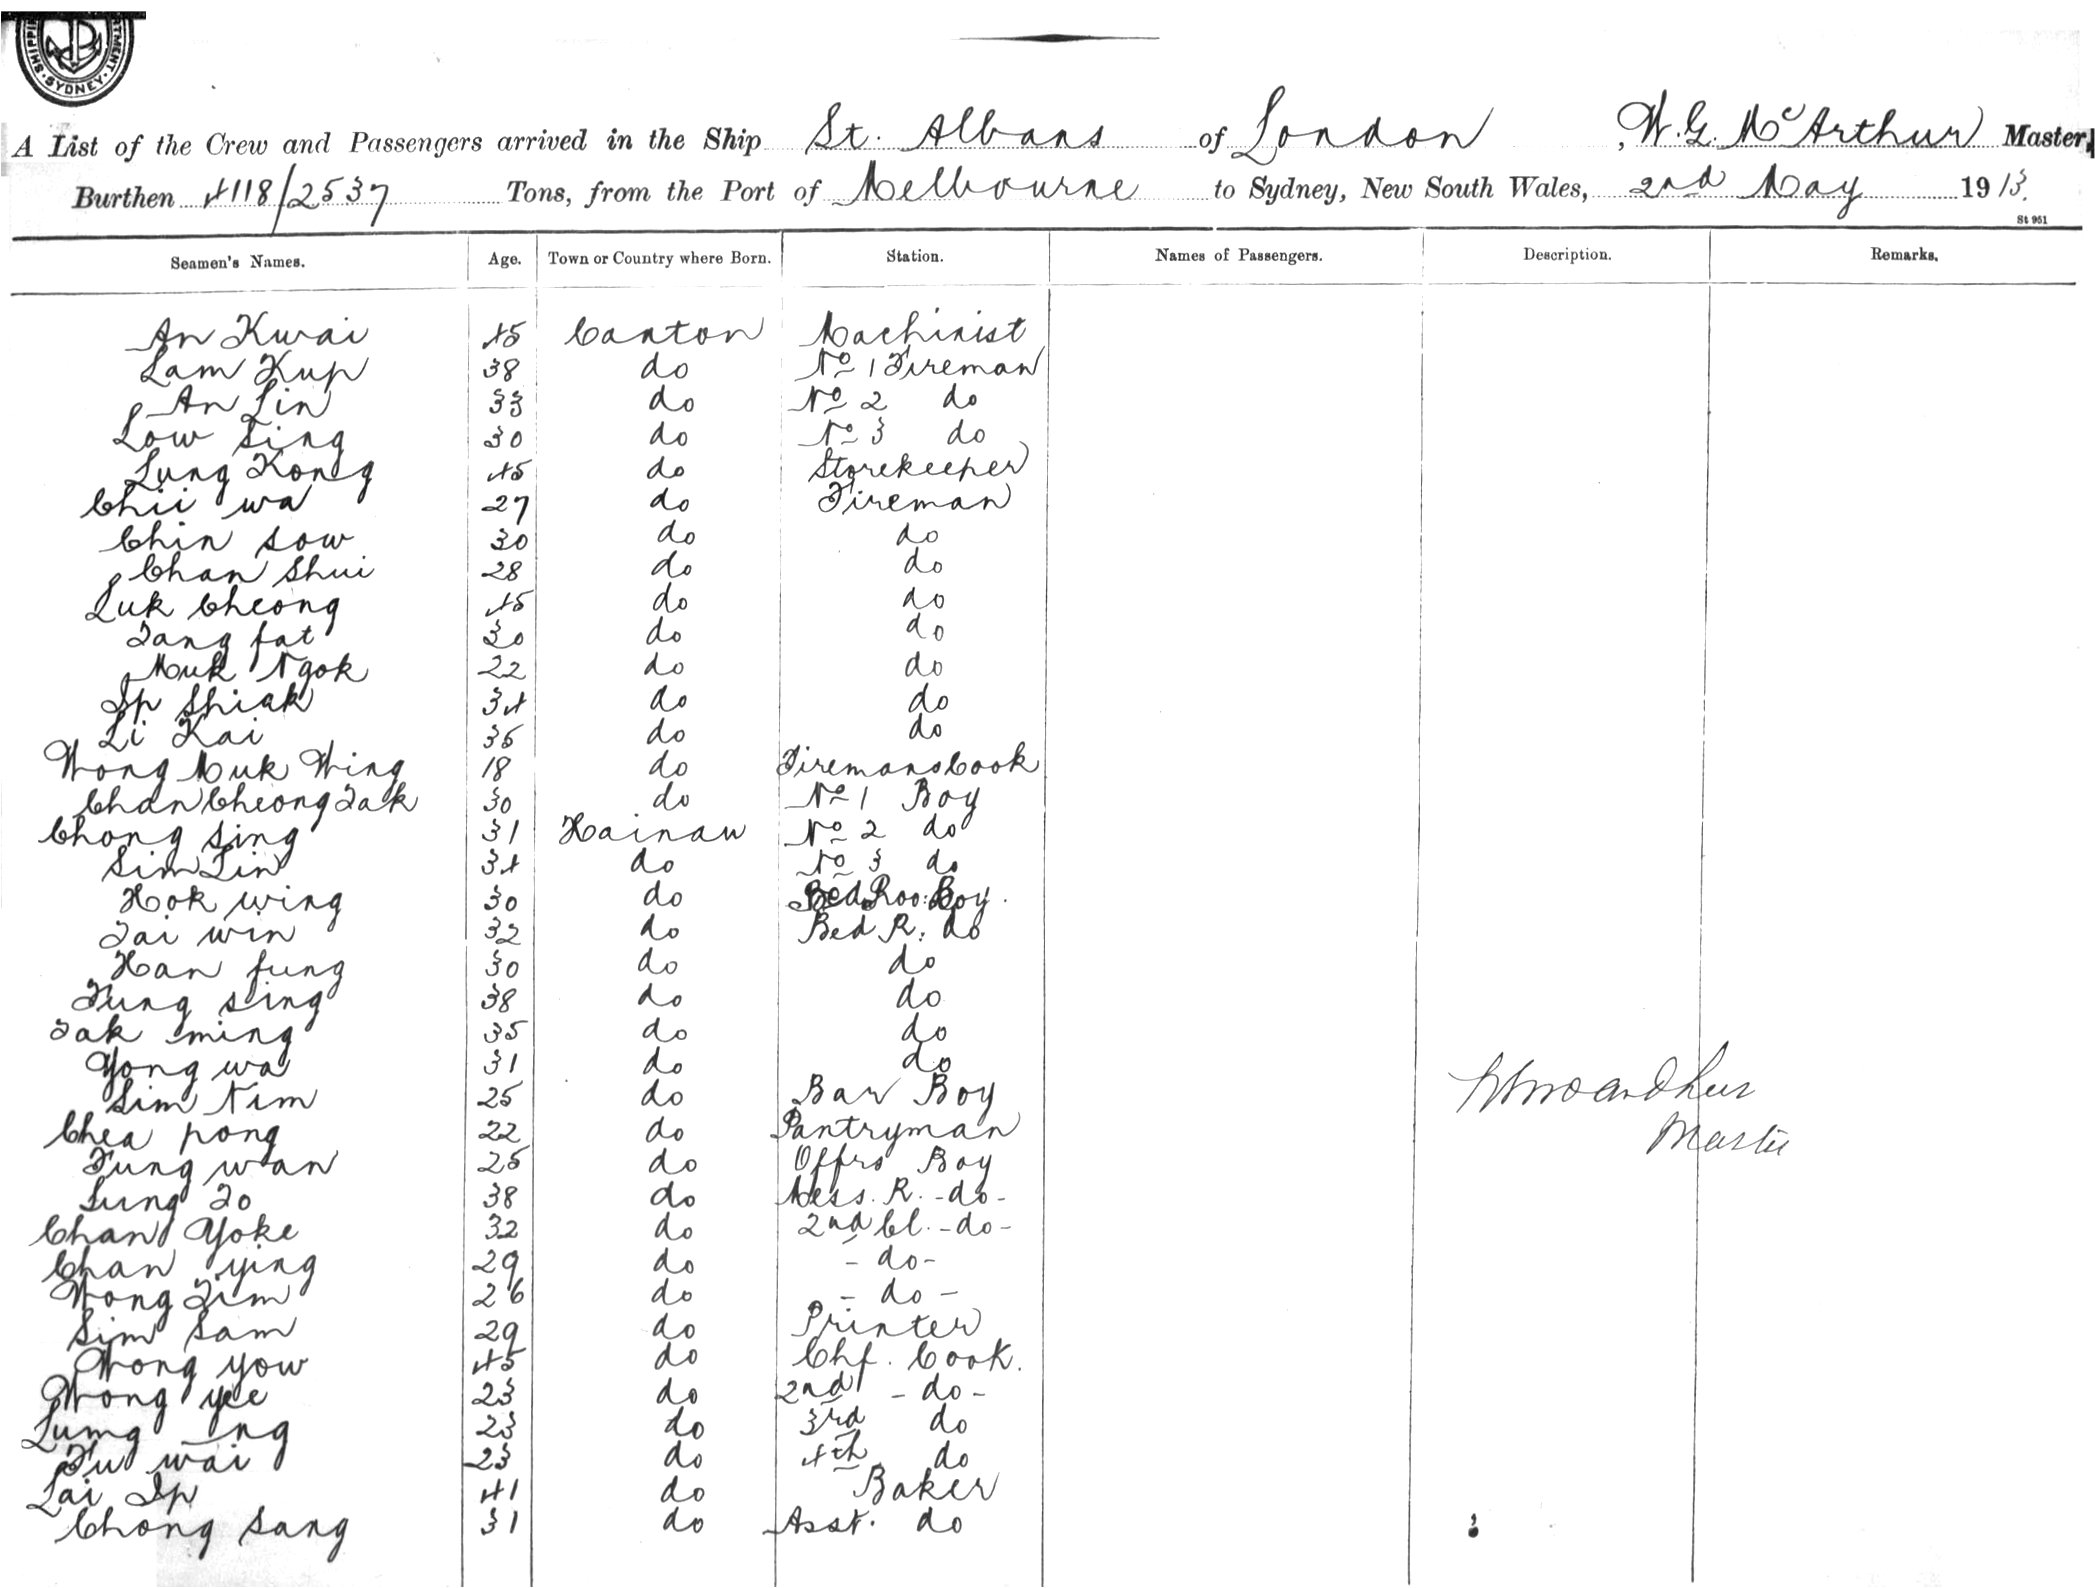 SHIPPI RTMENT · SYDNEY ·
A List of the Crew and Passengers arrived in the Ship St. Albans of London , W. G. McArthur Master,
Burthen 4118/2537 Tons, from the Port of Melbourne to Sydney, New South Wales, 2nd May 1913.
St 951
Seamen's Names. Age. Town or Country where Born. Station. Names of Passengers. Description. Remarks.
An Kwai 45 Canton Machinist
Lam Kup 38 do No 1 Fireman
An Lin 33 do No 2 do
Low Sing 30 do No 3 do
Lung Kong 45 do Storekeeper
Chii wa 27 do Fireman
Chin sow 30 do do
Chan Shui 28 do do
Luk Cheong 45 do do
Tang fat 30 do do
Muk Ngok 22 do do
Ip Shiak 34 do do
Li Kai 35 do do
Wong Muk Wing 18 do Firemans Cook
Chan Cheong Tak 30 do No 1 Boy
Chong sing 31 Hainaw No 2 do
Sim Lin 34 do No 3 do
Hok wing 30 do Bed Roo: Boy.
Tai win 32 do Bed R: do
Han fung 30 do do
Fung sing 38 do do
Tak ming 35 do do
Yong wa 31 do do
Sim Nim 25 do Bar Boy
Chea pong 22 do Pantryman
Fung wan 25 do Offrs Boy
Lung To 38 do Mess. R. -do-
Chan Yoke 32 do 2nd Cl. -do-
Chan ying 29 do -do-
Wong Tim 26 do -do-
Sim Sam 29 do Printer
Wong yow 45 do Chf. Cook.
Wong yee 23 do 2nd -do-
Lumg ing 23 do 3rd do
Fu wai 23 do 4th do
Lai Ip 41 do Baker
Chong Sang 31 do Asst. do
Master